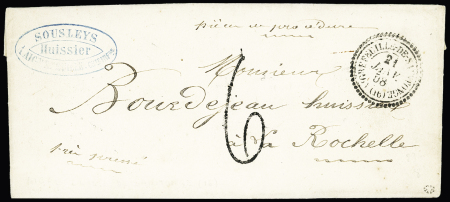 SOUSLEYS
Huissier
pièce de procédure
21
JANV.
58
Monsieur
Bourdejeau huissier
à La Rochelle
très pressé
6